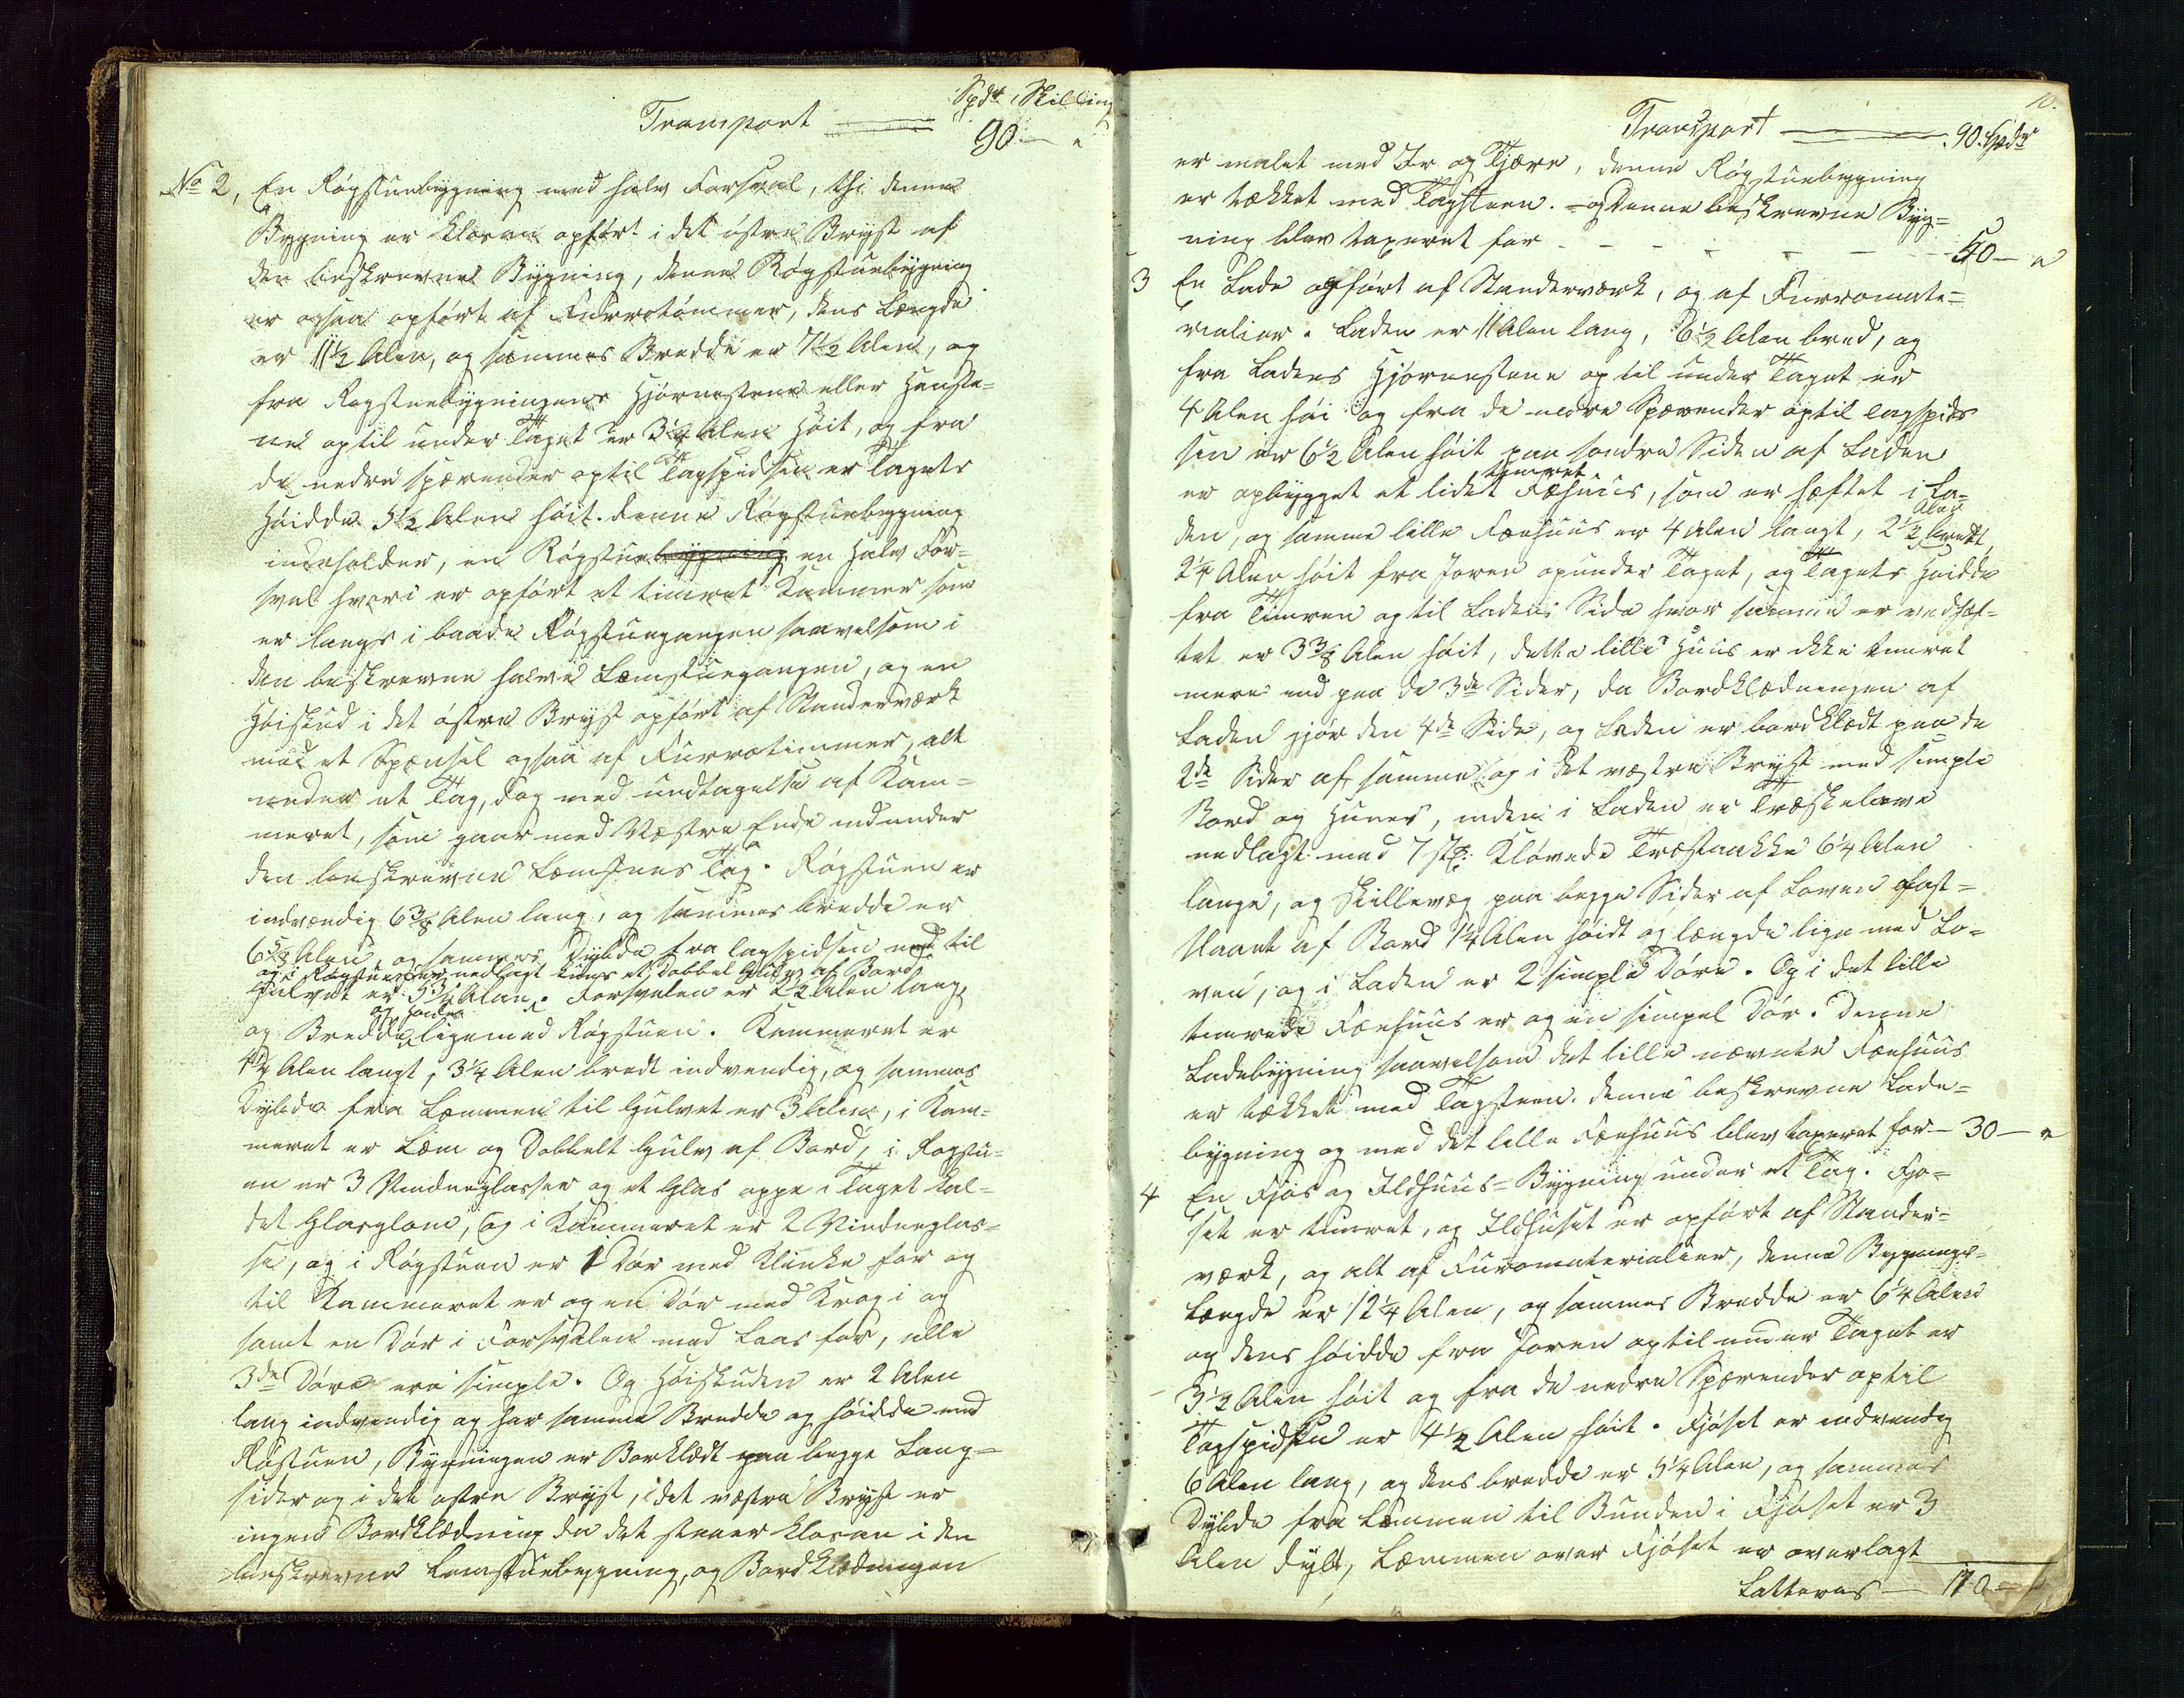 Spdr Skilling
Transport 90 — "
No 2, En Røgstuebygning med halv Forsval, thi denne
Bygning er klovan opført i det østre Bryst af
den beskrevne Bygning, denne Røgstuebygning
er ogsaa opført af Furretømmer, dens Længde
er 11½ Alen, og sammes Bredde er 7½ Alen, og
fra Røgstuebygningens Hjørnestene eller
optil under Taget er 3¼ Alen Høit, og fra
de nedre sparrender optil Tagspidsen er Tagets
Høidde 5½ Alen høit. denne Røgstuebygning
indeholder, en Røgstuebygning en halv For=
sval hvori er opført et timret Kammer som
er langs i baade Røgstuegangen saavelsom i
den beskrevne halve Lemstuegangen, og en
Høiskud i det østre Bryst opført af Standerværk
med et Spænsel ogsaa af Furretimmer, alt
under et Tag, dog med undtagelse af Kam=
meret, som gaar med Væstre Ende indunder
den beskrevne Lemstues Tag. Røgstuen er
indvændig 6⅜ Alen lang, og sammes bredde er
6⅝ Alen, og sammes Dybde fra lagspidsen ned til
og i Røgstuen er nedlagt et Dobbel Gulv af Bord
Gulvet er 5¾ Alen. Forsvalen er 2½ Alen lang,
og Høidde
og Bredde ligemed Røgstuen. Kammeret er
4¼ Alen langt, 3¼ Alen bredt indvendig, og sammes
Dybde fra Lemmen til Gulvet er 3 Alen, i Kam=
meret er Lem og Dobbelt Gulv af Bord, i Røgstu=
en er 3 Vindueglasser og et Glas oppe i Taget kal=
det Glasglane, Og i Kammeret er 2 Vindueglas=
se, og i Røgstuen er 1 Dør med Klinke for og
til Kammeret er og en Dør med Krog i og
samt en Dør i Forsvalen med Laas for, alle
3de Døre era simple. Og Høiskuden er 2 Alen
lang indvendig og har samme Bredde og høidde med
Røstuen, Bygningen er Borklædt paa begge Lang=
sider og i det østre Bryst, i det væstre Bryst er
ingen Bordklædning da det staaer klovan i den
beskrevne Lemstuebygning, og Bordklædningen
10.
Transport 90. Spdr
er malet med Ir og Tjære, denne Røgstuebygning
er tækket med Tagsteen. og Denne beskrevne Byg=
ning blev taxeret for - - - - - 50 — "
3 En Lade opført af Standerværk, og af Furremate=
rialier. Laden er 11 Alen lang, 6½ Alen bred, og
fra Ladens Hjørnestene op til under Taget er
4 Alen høi og fra de nedre Sparrender optil tagspids
sen er 6½ Alen høit paa søndre Siden af Laden
timret
er opbygget et lidet Fæhuus, som er hæftet i La=
Alen
den, og samme lille Fæehuus er 4 Alen langt, 2½ bredt
2¼ Alen høit fra Joren opunder Taget, og Tagets Høidde
fra Timren optil Ladens Side hvor samme er vedhæf=
tet er 3⅜ Alen høit, dette lille Huus er ikke timret
mere end paa de 3de Sider, da Bordklædningen af
Laden gjør den 4de Side, og Laden er bordklædt paa de
2de Sider af samme og i det væstre Bryst med simple
Bord og Huner, inden i Laden er Træskelave
nedlagt med 7 stk: Kløvede Træstaakke 6¼ Alen
lange, og Skillevæg paa begge Sider af Loven
af Bord 1¼ Alen høidt og længde lige med Lo=
ven, og i Laden er 2 simple Døre. Og i det lille
timrede Fæehuus er og en simpel Dør. Denne
Ladebygning saavelsom det lille nævnte Fæehuus
er tækket med Tagsteen. denne beskrevne Lade=
bygning og med det lille Fæehuus blev taxeret for — 30 — "
4 En Fjøs og Ildhuus=Bygning under et Tag. Fjø=
set er timret, og Ildhuset er opført af Stander=
værk, og alt af Furomaterialier, denne Bygnings=
Længde er 12¼ Alen, og sammes Bredde er 6¼ Alen
og dens høidde fra Joren optil under Taget er
3½ Alen høit og fra de nedre Sparrender optil
Tagspidsen er 4½ Alen høit. Fjøset er indvendig
6 Alen lang, og dens bredde er 5¼ Alen, og sammes
Dybde fra Lemmen til Bunden i Fjøset er 3
Alen dybt, Lemmen over Fjøset er overlagt
Latteres — 170 —